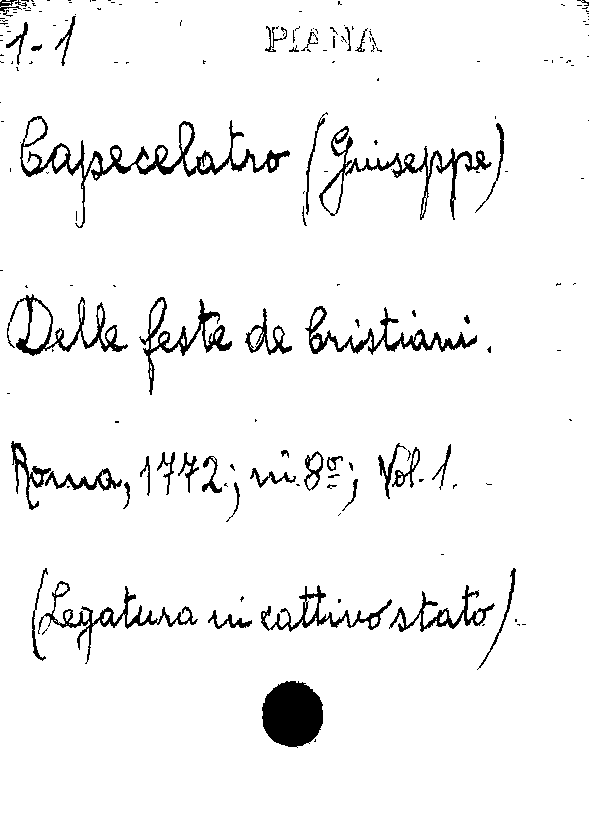 1-1 PIANA
Capecelatro (Giuseppe)
Delle feste de Cristiani.
Roma, 1772; in 8º; Vol. 1.
(Legatura in cattivo stato).